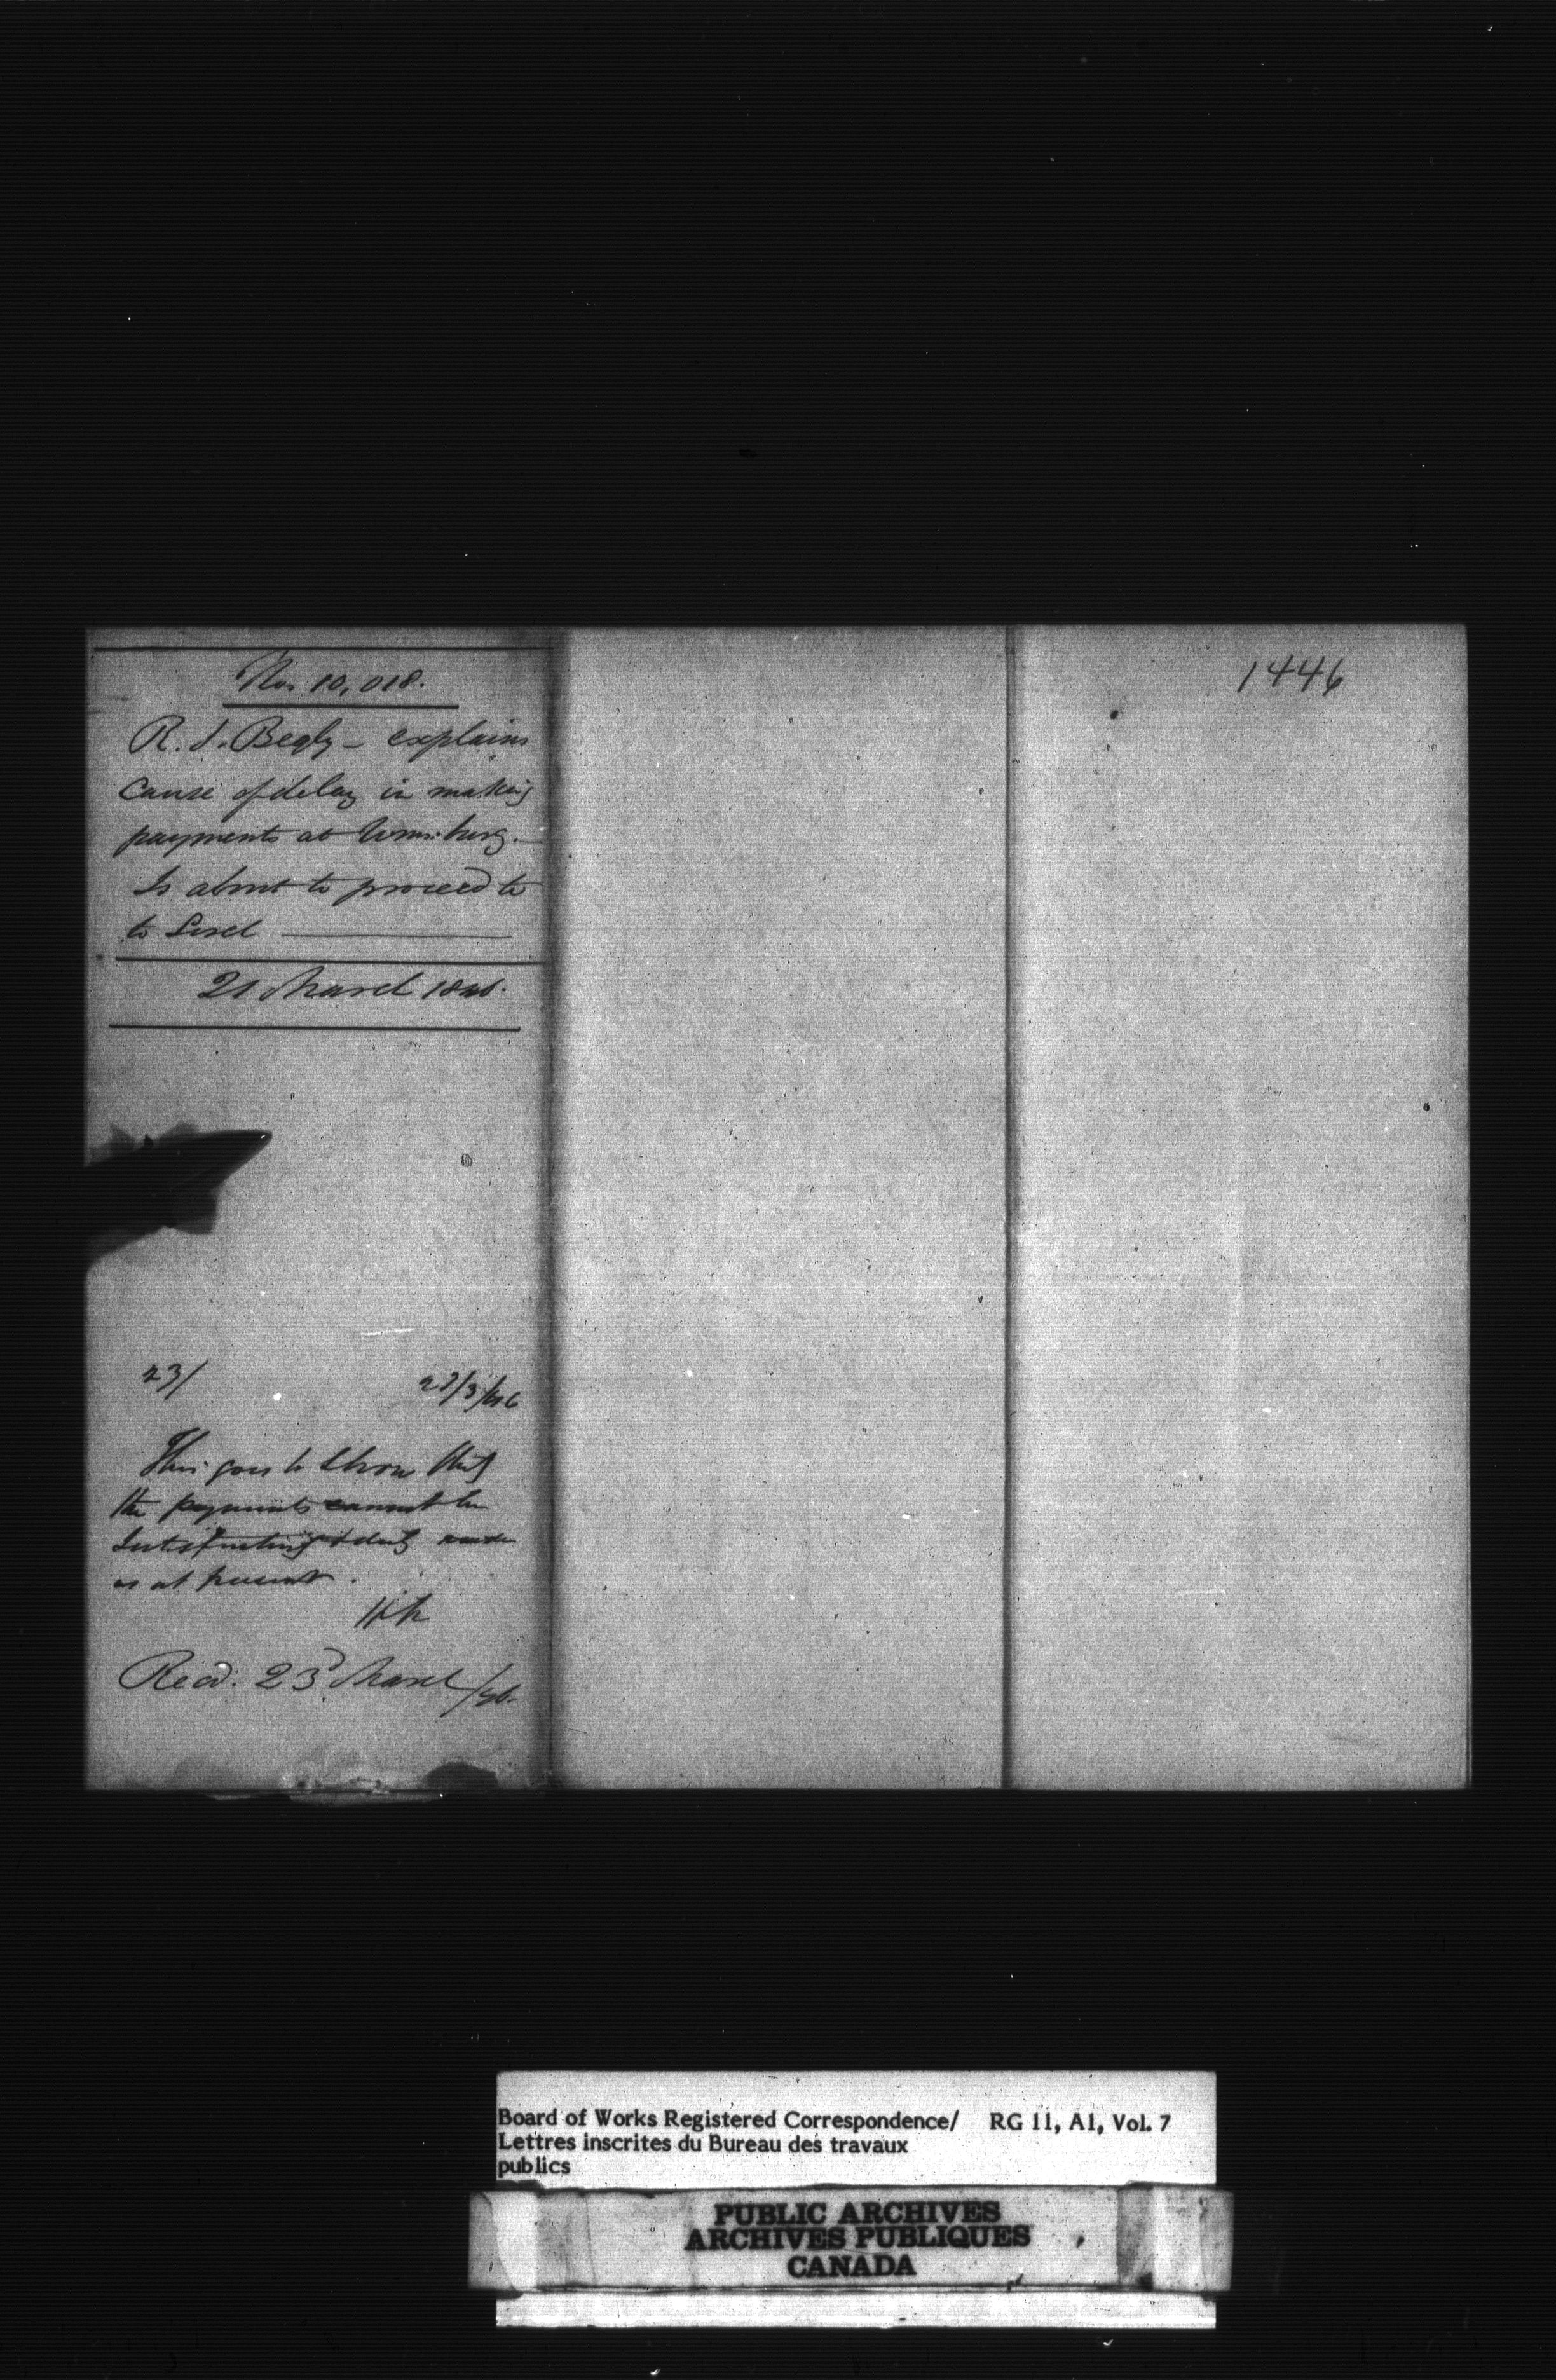 No. 10,018.
R. S. Begly - explains
cause of delay in making
payments at Wmsburg. -
Is about to proceed to
to Sorel
21 March 1846.
23/ 23/3/46
This goes to show that
the payments cannot be
satisfactorily made
as at present.
HHK
Recd. 23d March/46.
1446
Board of Works Registered Correspondence/ RG 11, A1, Vol. 7
Lettres inscrites du Bureau des travaux
publics
PUBLIC ARCHIVES
ARCHIVES PUBLIQUES
CANADA